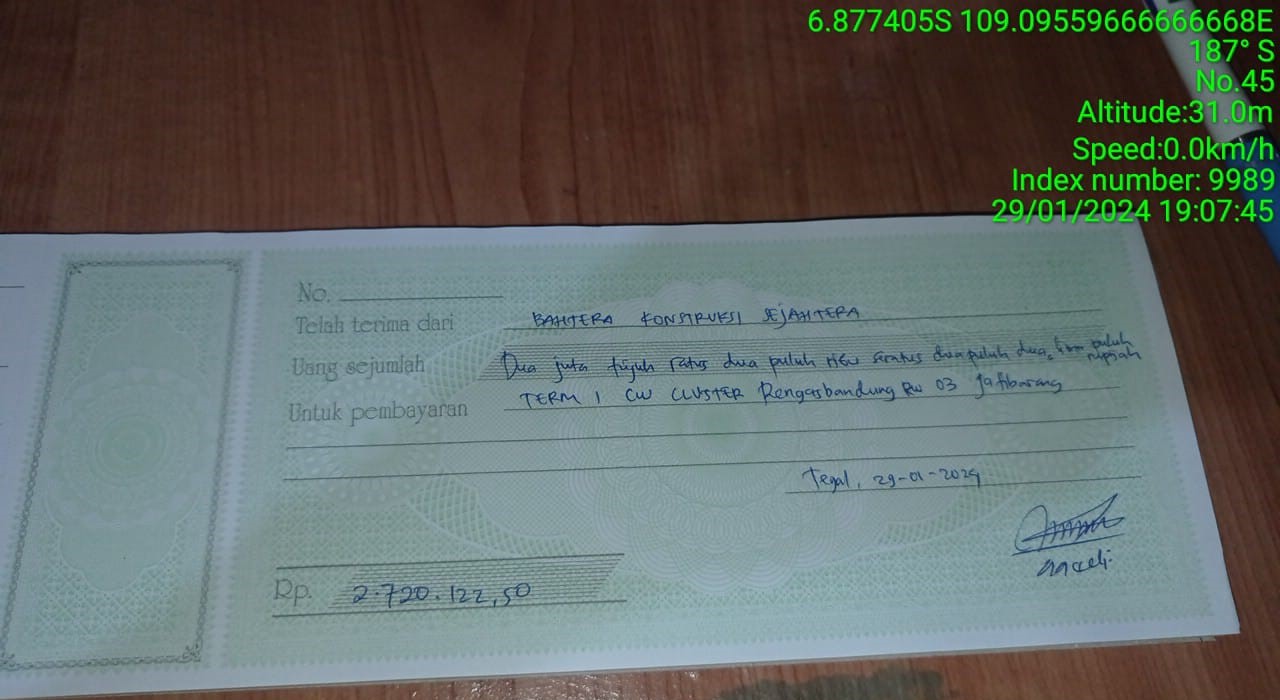 6.877405S 109.09559666666668E
187° S
No.45
Altitude:31.0m
Speed:0.0km/h
Index number: 9989
29/01/2024 19:07:45
No.
Telah terima dari BAHTERA KONSTRUKSI SEJAHTERA
Uang sejumlah Dua juta tujuh ratus dua puluh ribu seratus dua puluh dua, lima puluh rupiah
Untuk pembayaran TERM 1 CW CLUSTER Rengasbandung RW 03 Jatibarang
Tegal, 29-01-2024
Rp. 2.720.122,50